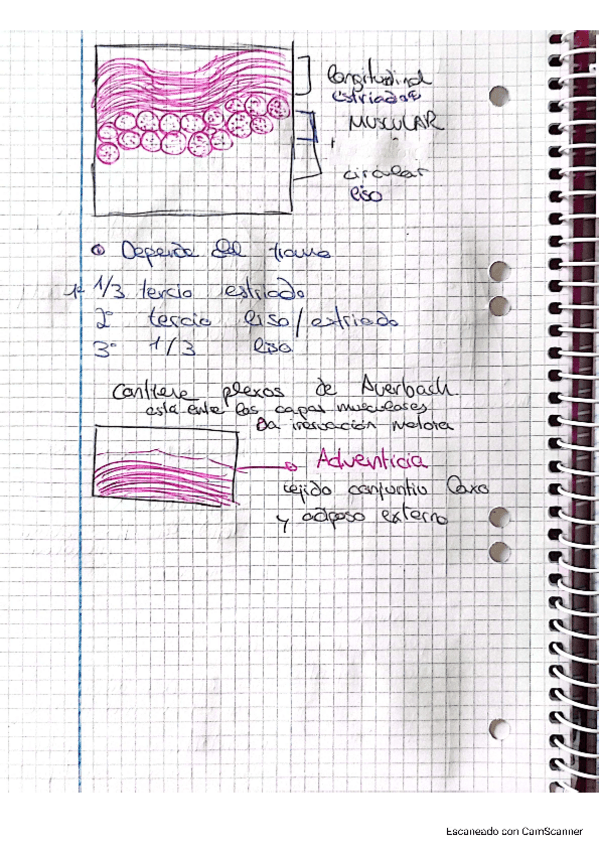 longitudinal
estriado
MUSCULAR
circular
liso
Depende del tramo
1º 1/3 tercio estriado
2º tercio liso/estriado
3º 1/3 liso
Contiene plexos de Averbach.
está entre las capas musculares
Da inervación motora
Adventicia
tejido conjuntivo laxo
y adiposo externo
Escaneado con CamScanner